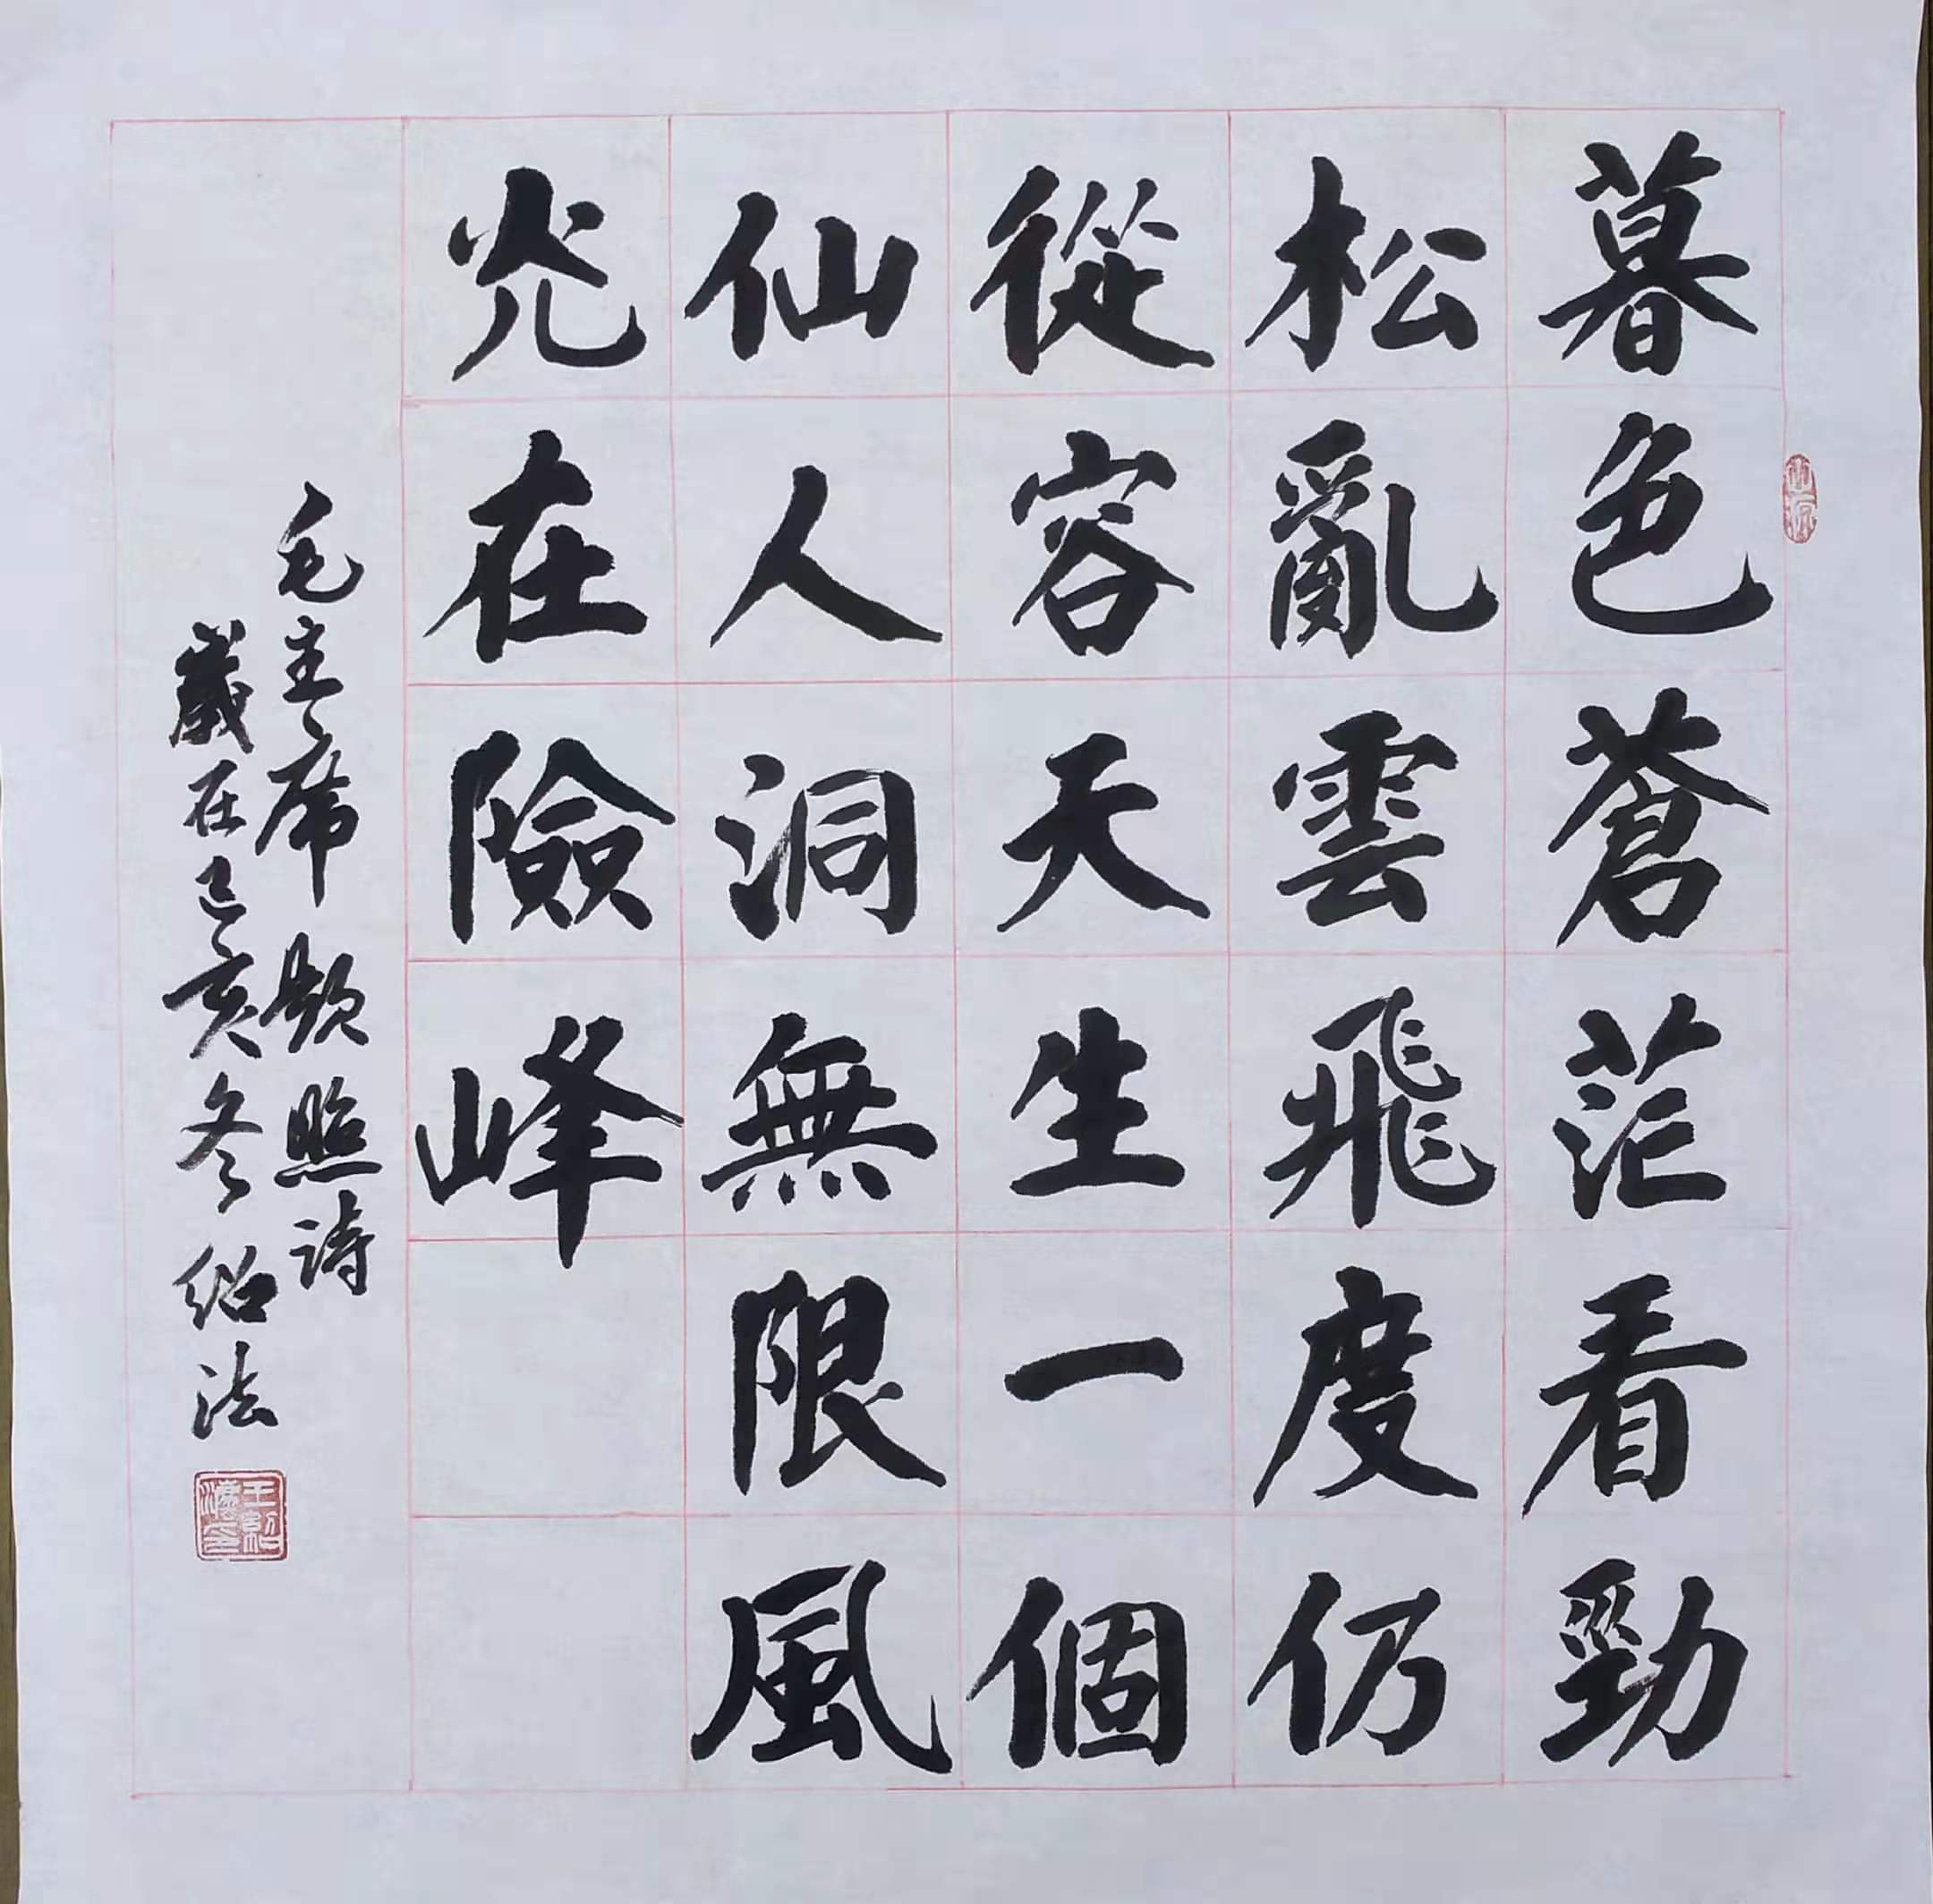 暮色蒼茫看勁
松亂雲飛度仍
從容天生一個
仙人洞無限風
光在險峰
毛主席題照詩
歲在己亥冬紹法